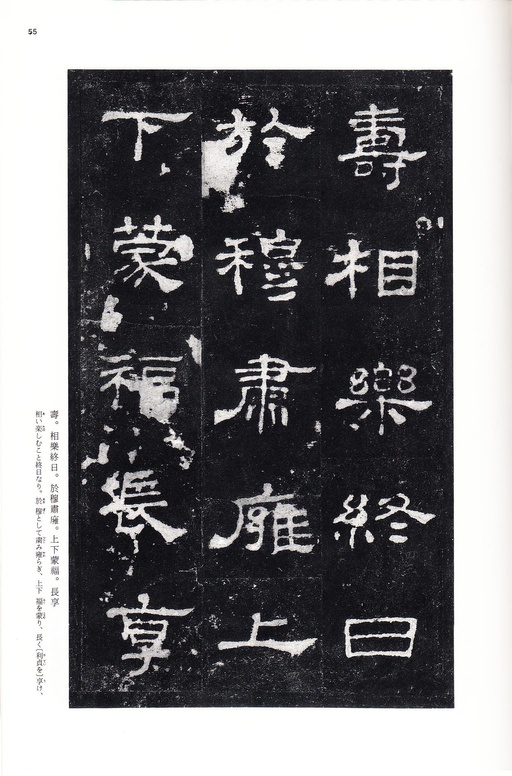 55
壽相樂終日
於穆肅廱上
下蒙福長享
壽。相樂終日。於穆肅廱。上下蒙福。長享
相い楽しむこと終日なり。於 穆として粛み廱らぎ、上下 福を蒙り、長く(利貞を)享け、